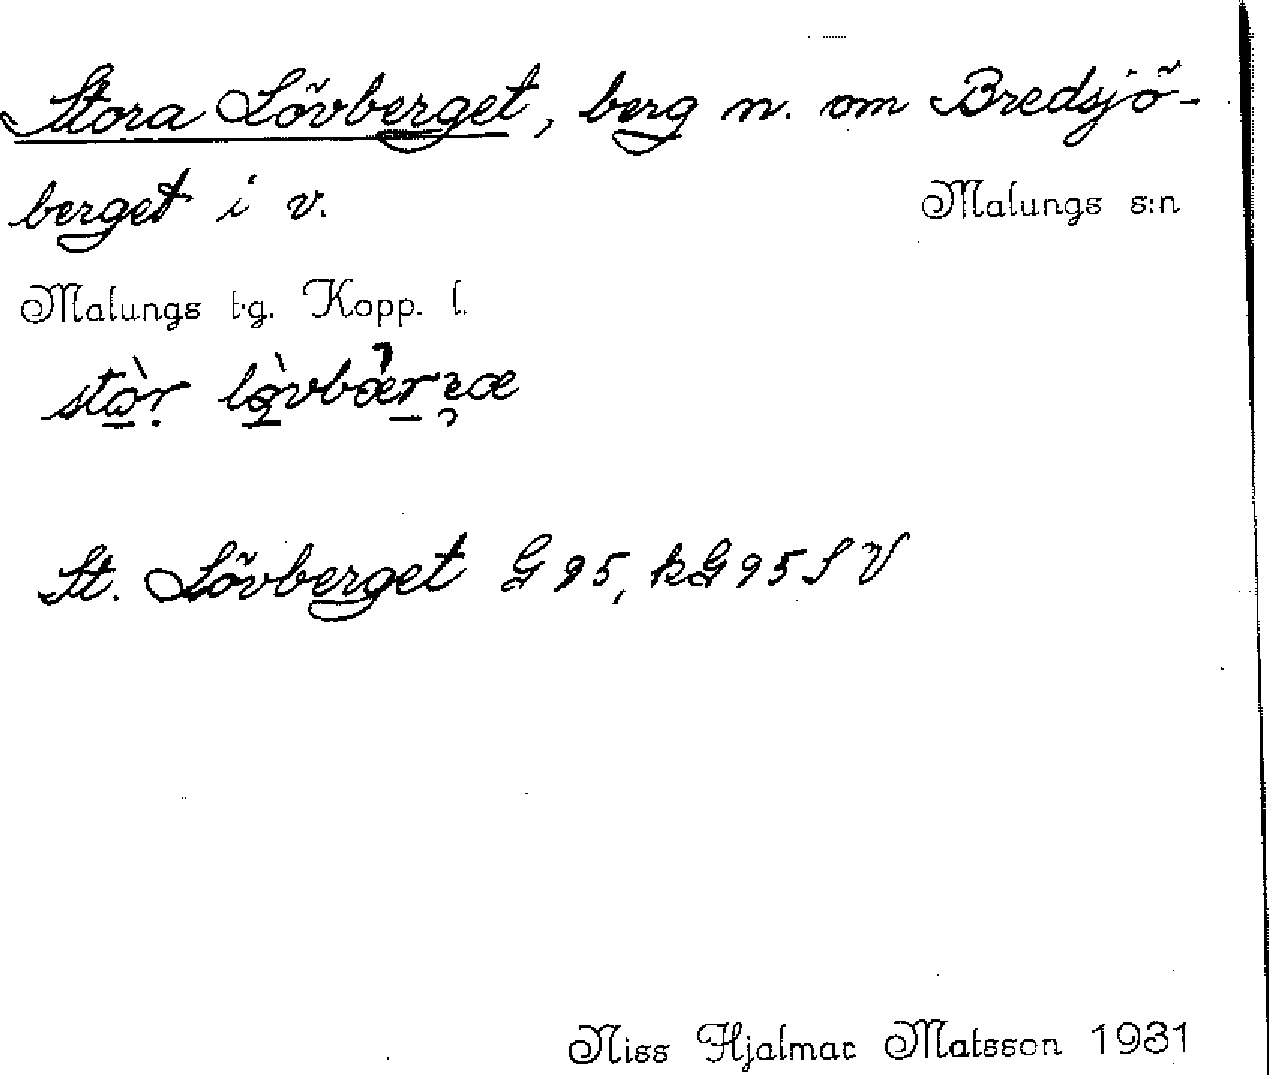 Stora Lövberget, berg n. om Bredsjö-
berget i v.
Malungs s:n
Malungs tg. Kopp. l.
stàr
St. Lövberget G 95, kG 95 S V
Niss Hjalmar Matsson 1931